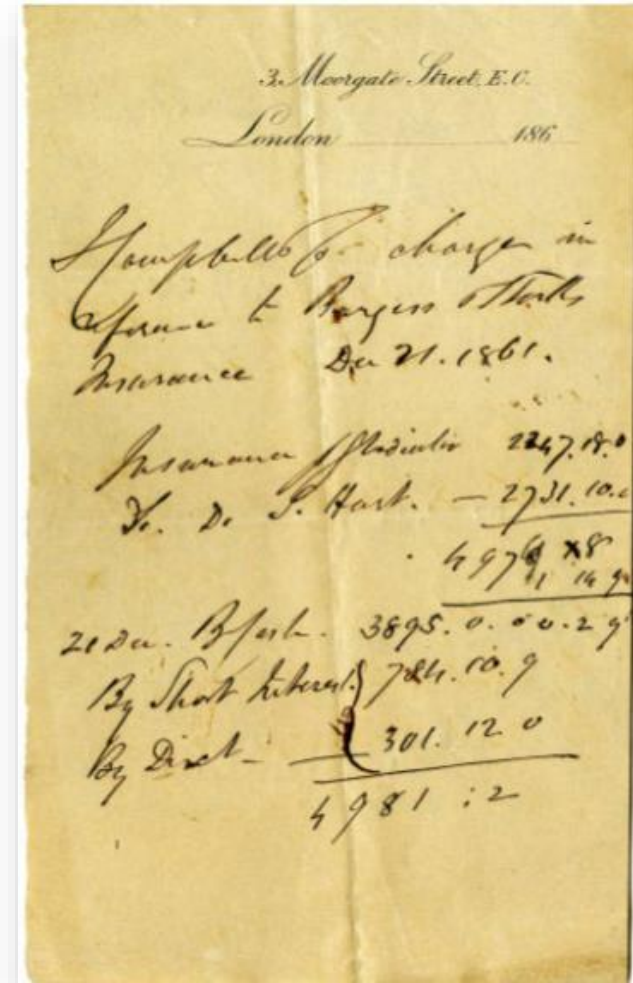 3. Moorgate Street, E.C.
London 186
Campbells charge in
reference to Burgess
Insurance Dec 21. 1861.
Insurance 2247.18.0
Do. Do S. Hart. — 2731.10.
497 8
1 14 9
21 Dec. 3895.0.0 0.2 9
By Short Interest 784.10.9
By Disct — 301.12 0
4981 : 2